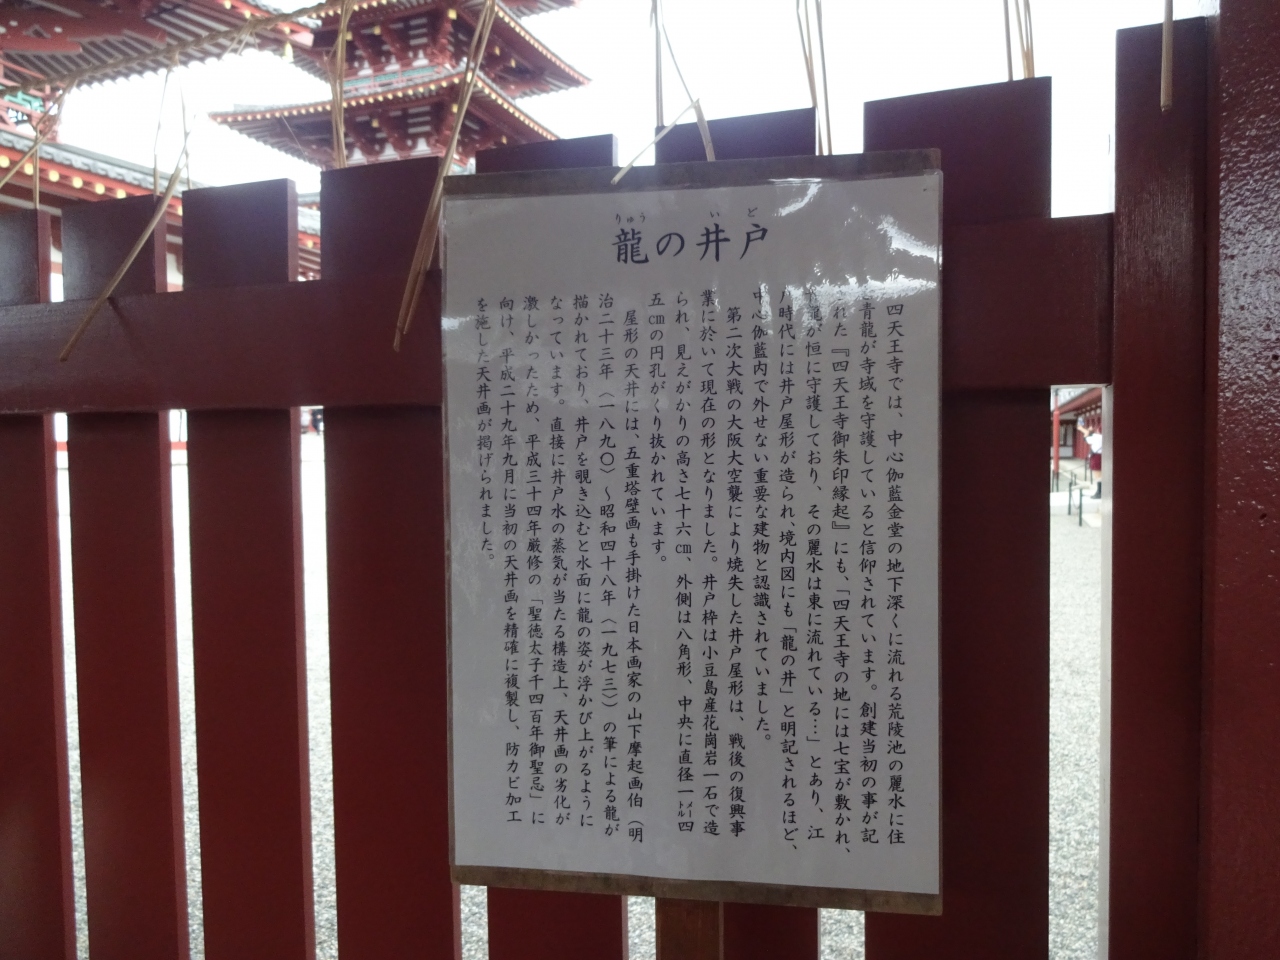 龍の井戸
りゅう い ど
四天王寺では、中心伽藍金堂の地下深くに流れる荒陵池の麗水に住
青龍が寺域を守護していると信仰されています。創建当初の事が記
れた『四天王寺御朱印縁起』にも、「四天王寺の地には七宝が敷かれ、
龍が恒に守護しており、その麗水は東に流れている…」とあり、江
戸時代には井戸屋形が造られ、境内図にも「龍の井」と明記されるほど、
中心伽藍内で外せない重要な建物と認識されていました。
第二次大戦の大阪大空襲により焼失した井戸屋形は、戦後の復興事
業に於いて現在の形となりました。井戸枠は小豆島産花崗岩一石で造
られ、見えがかりの高さ七十六㎝、外側は八角形、中央に直径一メートル四
五㎝の円孔がくり抜かれています。
屋形の天井には、五重塔壁画も手掛けた日本画家の山下摩起画伯（明
治二十三年（一八九〇）～昭和四十八年（一九七三））の筆による龍が
描かれており、井戸を覗き込むと水面に龍の姿が浮かび上がるように
なっています。直接に井戸水の蒸気が当たる構造上、天井画の劣化が
激しかったため、平成三十四年厳修の「聖徳太子千四百年御聖忌」に
向け、平成二十九年九月に当初の天井画を精確に複製し、防カビ加工
を施した天井画が掲げられました。